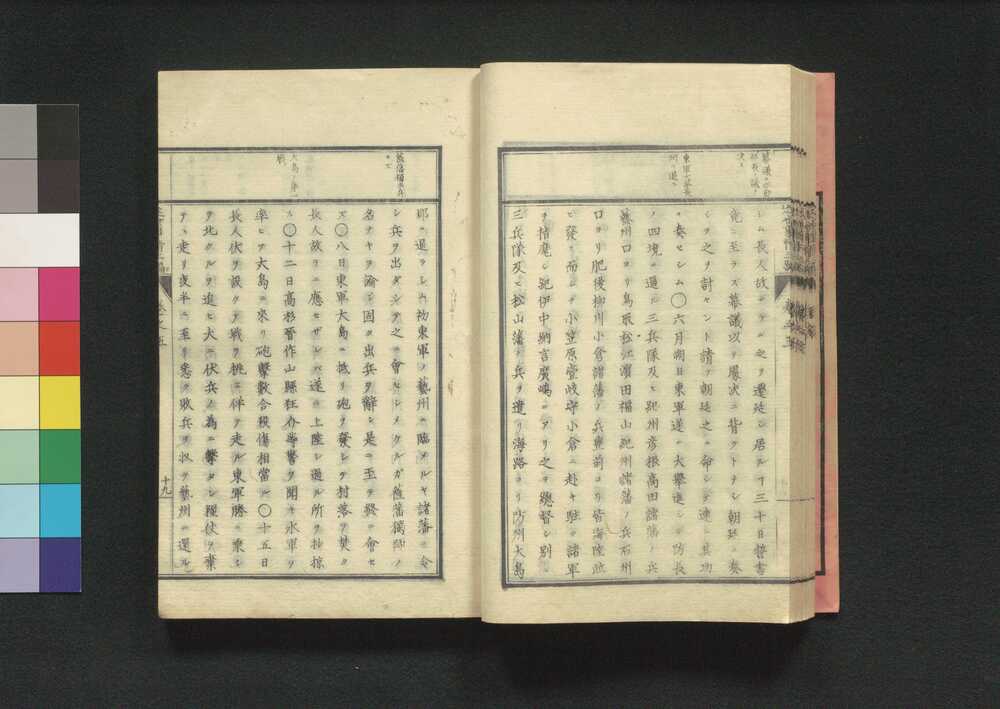 シム長人故ニソムルニ之ヲ遷延シ居ルヿ三十日誓書
竟ニ至ラズ幕議以テ屢次ニ背クトナシ朝廷ニ奏
シテ之ヲ討セント請フ朝廷之ニ命シテ速ニ其功
ヲ奏セシム〇六月朔日東軍遂ニ大擧進シテ防長
ノ四境ニ逼ル三兵隊及ヒ紀州彦根高田諸藩ノ兵
藝州口ヨリ鳥取松江濱田福山紀州諸藩ノ兵石州
口ヨリ肥後柳川小倉諸藩ノ兵豐前ヨリ皆海陸
ヒ發ス而シテ小笠原壹岐守小倉ニ赴キ駐テ諸軍
ヲ指麾シ紀伊中納言廣嶋ニアリ之ヲ總督シ別ニ
三兵隊及ヒ松山藩ノ兵ヲ遣リ海路ヨリ防州大島
郡ニ逼ラシム初東軍ノ藝州ニ臨メルヤ諸藩ニ令
シ兵ヲ出ダシテ之ニ會セシメタルガ薩藩獨師ノ
名ナキヲ論シ固ク出兵ヲ辭シ是ニ至テ終ニ會セ
ズ〇八日東軍大島ニ抵リ砲ヲ發シテ村落ヲ焚ク
長人故ラニ應セザレバ遂ニ上陸シ過ル所ヲ抄掠
ス〇十二日高杉晉作山縣狂介等警ヲ聞キ水軍ヲ
率ヒテ大島ニ來リ砲擊數合殺傷相當ル〇十五日
長人伏ヲ設ケテ戰ヲ挑ミ佯テ走ル東軍勝ニ乘シ
テ北グルヲ追ヒ大ニ伏兵ノ為ニ擊タレ糧仗ヲ棄
テヽ走リ夜半ニ至リ悉ク敗兵ヲ收テ藝州ニ還ル
東軍大擧長
州ニ逼ル
薩藩獨出兵ヲ
大島ノ
戰
十九